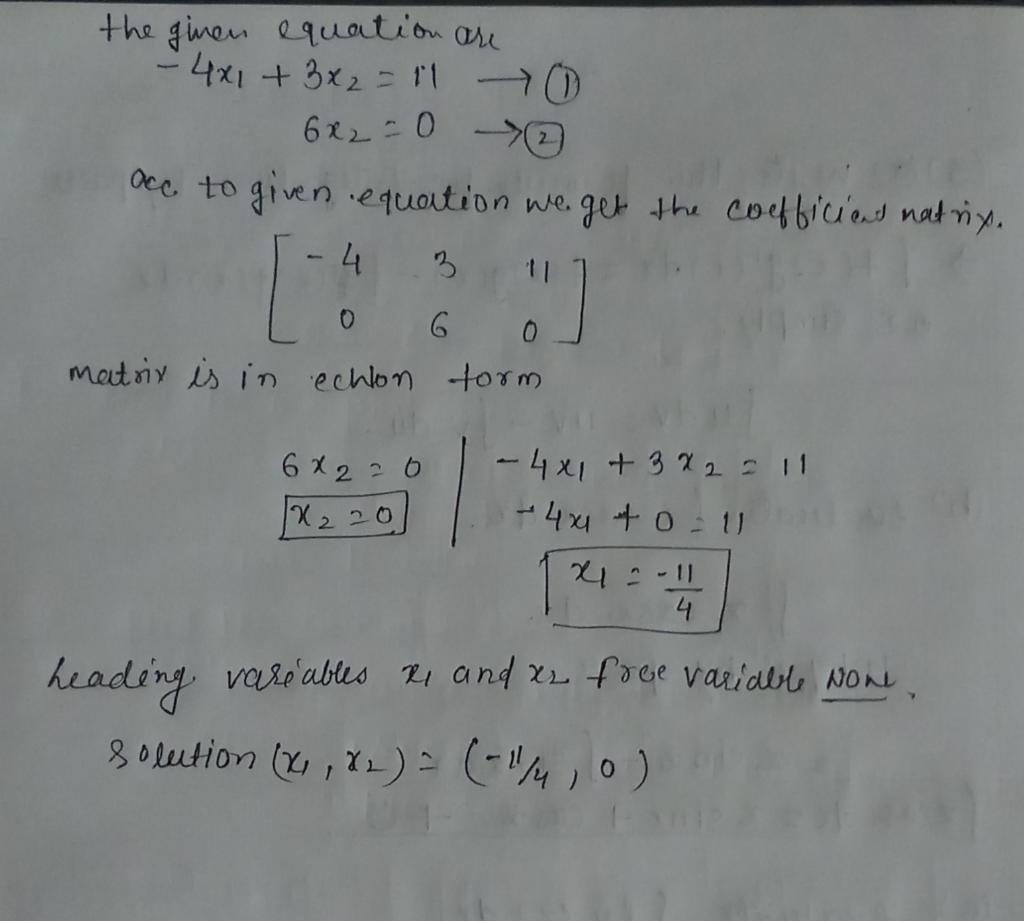 the given equation are
- 4x1 + 3x2 = 11 → ①
6x2 = 0 → ②
acc to given equation we get the coefficient matrix.
[ - 4 3 11 ]
[ 0 6 0 ]
matrix is in echlon form
6x2 = 0 | - 4x1 + 3x2 = 11
x2 = 0 | - 4x1 + 0 = 11
x1 = -11/4
Leading variables x1 and x2 free variable NONE.
Solution (x1, x2) = (-11/4, 0)